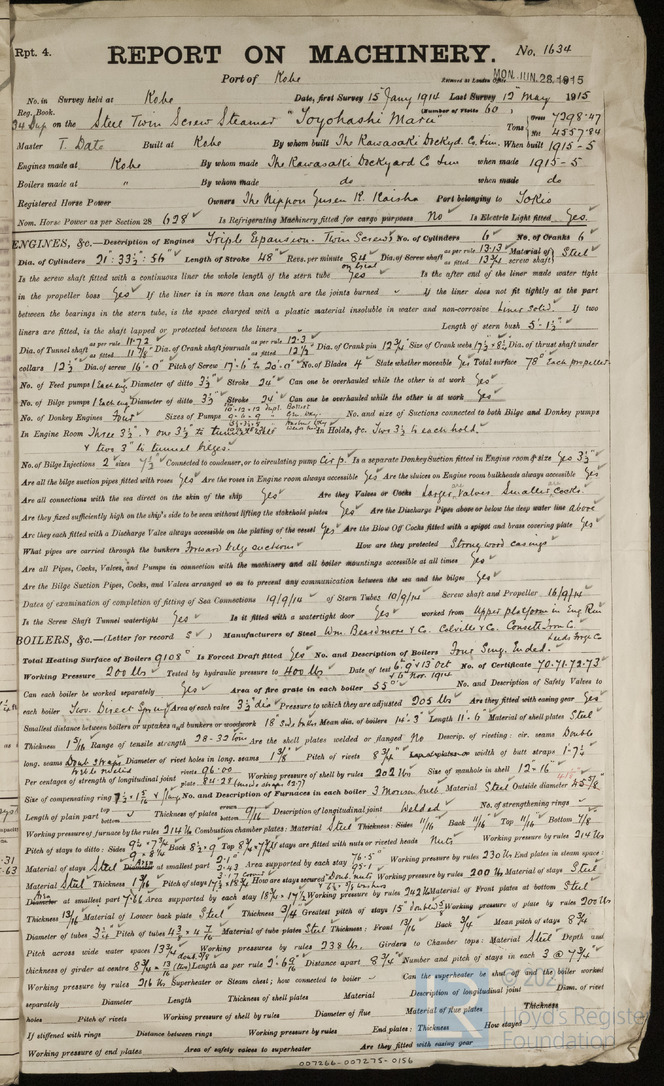 Rpt. 4.
REPORT ON MACHINERY.
No. 1634
Port of Kobe
Received at London Office MON. JUN. 28. 1915
No. in Survey held at Kobe Date, first Survey 15 Jany 1914 Last Survey 12 May 1915
Reg. Book. (Number of Visits 60)
on the Steel Twin Screw Steamer "Toyohashi Maru" Tons Gross 7298.47
Net 4557.84
Master T. Date Built at Kobe By whom built The Kawasaki Dockyd. Co. Lim. When built 1915-5
Engines made at Kobe By whom made The Kawasaki Dockyard Co Lim when made 1915-5
Boilers made at " By whom made do when made do
Registered Horse Power Owners The Nippon Yusen K. Kaisha Port belonging to Tokio
Nom. Horse Power as per Section 28 628 Is Refrigerating Machinery fitted for cargo purposes No Is Electric Light fitted Yes.
ENGINES, &c.—Description of Engines Triple Expansion. Twin Screws No. of Cylinders 6 No. of Cranks 6
Dia. of Cylinders 21" : 33½" : 56" Length of Stroke 48" Revs. per minute 84 on trial Dia. of Screw shaft as per rule 13.13 as fitted 13¾ Material of screw shaft Steel
Is the screw shaft fitted with a continuous liner the whole length of the stern tube Yes Is the after end of the liner made water tight
in the propeller boss Yes If the liner is in more than one length are the joints burned If the liner does not fit tightly at the part
between the bearings in the stern tube, is the space charged with a plastic material insoluble in water and non-corrosive Liner solid. If two
liners are fitted, is the shaft lapped or protected between the liners " Length of stern bush 5'-1½"
Dia. of Tunnel shaft as per rule 11.72 as fitted 11⅞ Dia. of Crank shaft journals as per rule 12.3 as fitted 12½ Dia. of Crank pin 12¾ Size of Crank webs Dia. of thrust shaft under
collars 12½ Dia. of screw 16'-0" Pitch of Screw 17'-6" to 20'-0" No. of Blades 4 State whether moveable Yes Total surface 78 Each propeller
No. of Feed pumps 1 Each eng. Diameter of ditto 3½" Stroke 24" Can one be overhauled while the other is at work Yes
No. of Bilge pumps 1 Each eng. Diameter of ditto 3½" Stroke 24" Can one be overhauled while the other is at work Yes
No. of Donkey Engines Four Sizes of Pumps No. and size of Suctions connected to both Bilge and Donkey pumps
In Engine Room Three 3½" & one 3½" to tunnel In Holds, &c. Two 3½ to each hold.
& two 3" to tunnel bilges.
No. of Bilge Injections 2 sizes 7½" Connected to condenser, or to circulating pump Cir p. Is a separate Donkey Suction fitted in Engine room & size Yes 3½"
Are all the bilge suction pipes fitted with roses Yes Are the roses in Engine room always accessible Yes Are the sluices on Engine room bulkheads always accessible Yes
Are all connections with the sea direct on the skin of the ship Yes Are they Valves or Cocks Larger Valves Smaller Cocks
Are they fixed sufficiently high on the ship's side to be seen without lifting the stokehold plates Yes Are the Discharge Pipes above or below the deep water line above
Are they each fitted with a Discharge Valve always accessible on the plating of the vessel Yes Are the Blow Off Cocks fitted with a spigot and brass covering plate Yes
What pipes are carried through the bunkers Forward bilge suctions How are they protected Strong wood casings
Are all Pipes, Cocks, Valves, and Pumps in connection with the machinery and all boiler mountings accessible at all times Yes
Are the Bilge Suction Pipes, Cocks, and Valves arranged so as to prevent any communication between the sea and the bilges Yes
Dates of examination of completion of fitting of Sea Connections 19/9/14 of Stern Tubes 10/9/14 Screw shaft and Propeller 16/9/14
Is the Screw Shaft Tunnel watertight Yes Is it fitted with a watertight door Yes worked from Upper platform in Eng. Rm
BOILERS, &c.—(Letter for record S) Manufacturers of Steel Wm. Beardmore & Co. Colville & Co. Consett Iron Co. Leeds Forge Co
Total Heating Surface of Boilers 9108 Is Forced Draft fitted Yes No. and Description of Boilers Four Sing. Ended.
Working Pressure 200 lbs Tested by hydraulic pressure to 400 lbs Date of test 6, 9 & 13 Oct & 6 Nov. 1914 No. of Certificate 70.71.72.73
Can each boiler be worked separately Yes Area of fire grate in each boiler 55 No. and Description of Safety Valves to
each boiler Two. Direct Spring Area of each valve 3½ dia Pressure to which they are adjusted 205 lbs Are they fitted with easing gear Yes
Smallest distance between boilers or uptakes and bunkers or woodwork 18" Mean dia. of boilers 14'-3" Length 11'-6" Material of shell plates Steel
Thickness 1 5/16 Range of tensile strength 28-32 tons Are the shell plates welded or flanged No Descrip. of riveting: cir. seams Double
long. seams Doub straps Diameter of rivet holes in long. seams 1⅜ Pitch of rivets 8¾ width of butt straps 1-7¼
Per centages of strength of longitudinal joint rivets 96.00 plate 84.28 Working pressure of shell by rules 202 lbs Size of manhole in shell 12"-16"
Size of compensating ring No. and Description of Furnaces in each boiler 3 Morison bulb Material Steel Outside diameter 45⅝"
Length of plain part top bottom Thickness of plates crown bottom 9/16 Description of longitudinal joint Welded No. of strengthening rings
Working pressure of furnace by the rules 214 lbs Combustion chamber plates: Material Steel Thickness: Sides 11/16 Back 11/16 Top 11/16 Bottom 7/8
Pitch of stays to ditto: Sides Back 8½ × 9 Top If stays are fitted with nuts or riveted heads Nuts Working pressure by rules 214 lbs
Material of stays Steel at smallest part Area supported by each stay Working pressure by rules 230 lbs End plates in steam space:
Material Steel Thickness 1 3/16 Pitch of stays How are stays secured Doub. nuts & washers Working pressure by rules 200 lbs Material of stays Steel
at smallest part Area supported by each stay Working pressure by rules 242 lbs Material of Front plates at bottom Steel
Thickness 13/16 Material of Lower back plate Steel Thickness 3/4 Greatest pitch of stays 15" Working pressure of plate by rules 200 lbs
Diameter of tubes Pitch of tubes Material of tube plates Steel Thickness: Front 13/16 Back 3/4 Mean pitch of stays 8¾
Pitch across wide water spaces 13¾ Working pressures by rules 238 lbs, Girders to Chamber tops: Material Steel Depth and
thickness of girder at centre Length as per rule Distance apart 8¾ Number and pitch of stays in each 3 @ 7¾
Working pressure by rules 216 lbs Superheater or Steam chest; how connected to boiler Can the superheater be shut off and the boiler worked
separately Diameter Length Thickness of shell plates Material Description of longitudinal joint Diam. of rivet
holes Pitch of rivets Working pressure of shell by rules Diameter of flue Material of flue plates Thickness
If stiffened with rings Distance between rings Working pressure by rules End plates: Thickness How stayed
Working pressure of end plates Area of safety valves to superheater Are they fitted with easing gear
Lloyd's Register
Foundation
007266-007275-0156